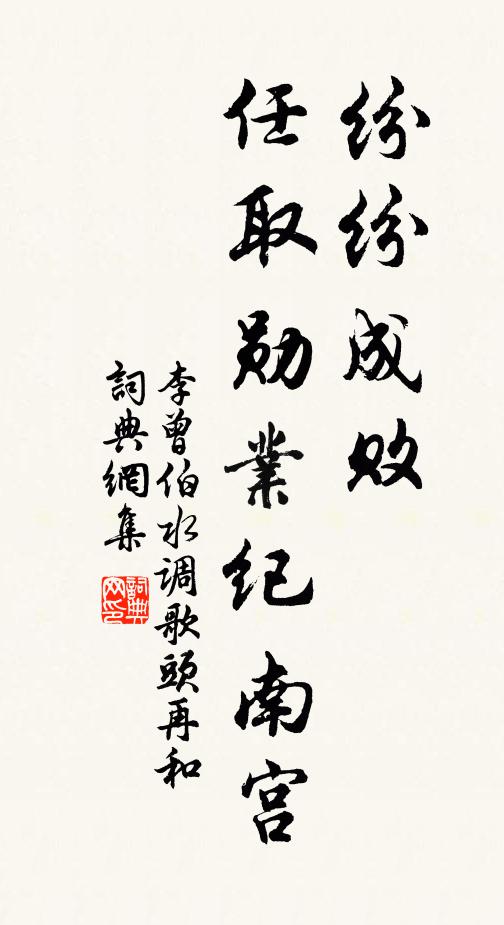 纷纷成败
任取勋業纪南宫
李曾伯水调歌頭再和
詞典網集
詞典网印